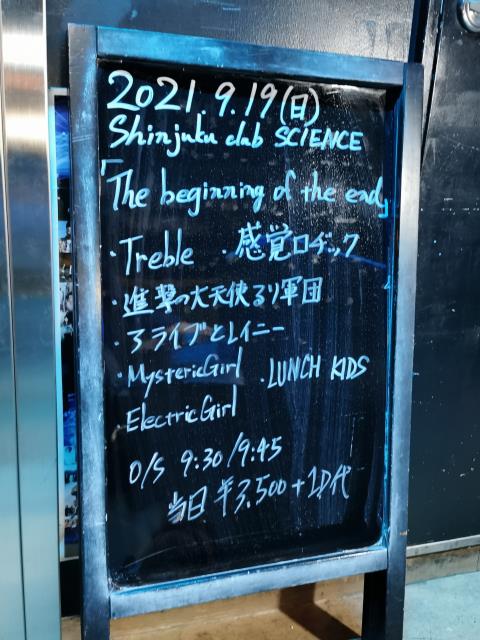 2021.9.19(日)
Shinjuku club SCIENCE
「The beginning of the end」
・Treble ・感覚ロヂック
・進撃の大天使るり軍団
・3ライブとレイニー
・MystericGirl ・LUNCH KIDS
・ElectricGirl
O/S 9:30/9:45
当日 ¥3.500+1D代